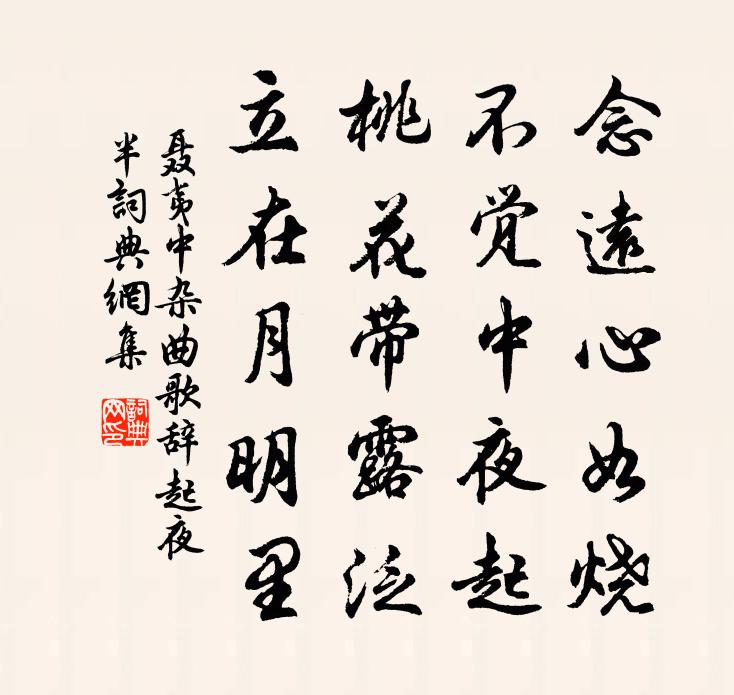 念遠心如烧
不觉中夜起
桃花带露泛
立在月明里
聂夷中杂曲歌辞起夜
半詞典網集
詞典
网印